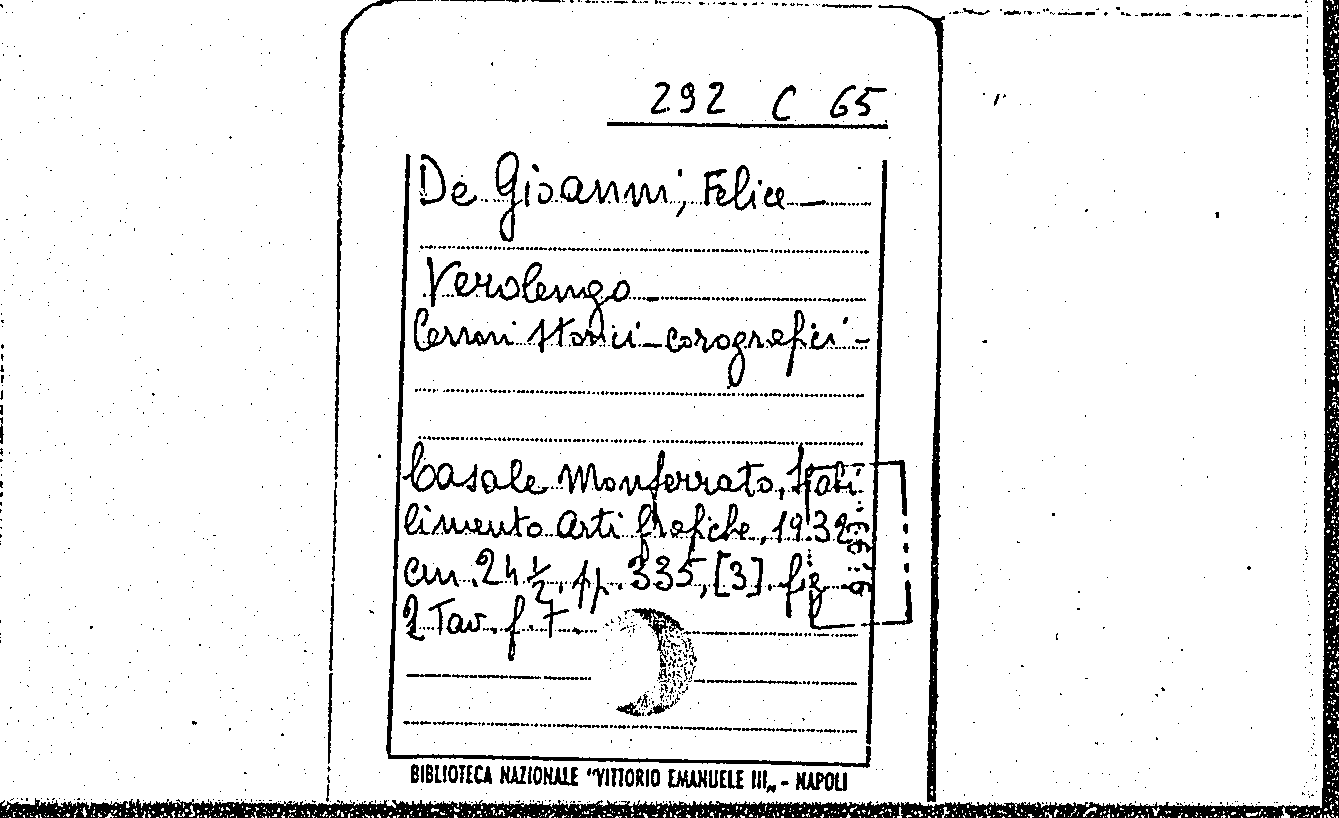 292 C 65
De Giovanni, Felice_
Verolengo_
Cenni storici_corografici_
Casale Monferrato, Stabi
limento Arti Grafiche, 1932
cm. 24 ½, pp. 335, [3]. fig
2 Tav. f. T.
BIBLIOTECA NAZIONALE "VITTORIO EMANUELE III„ - NAPOLI